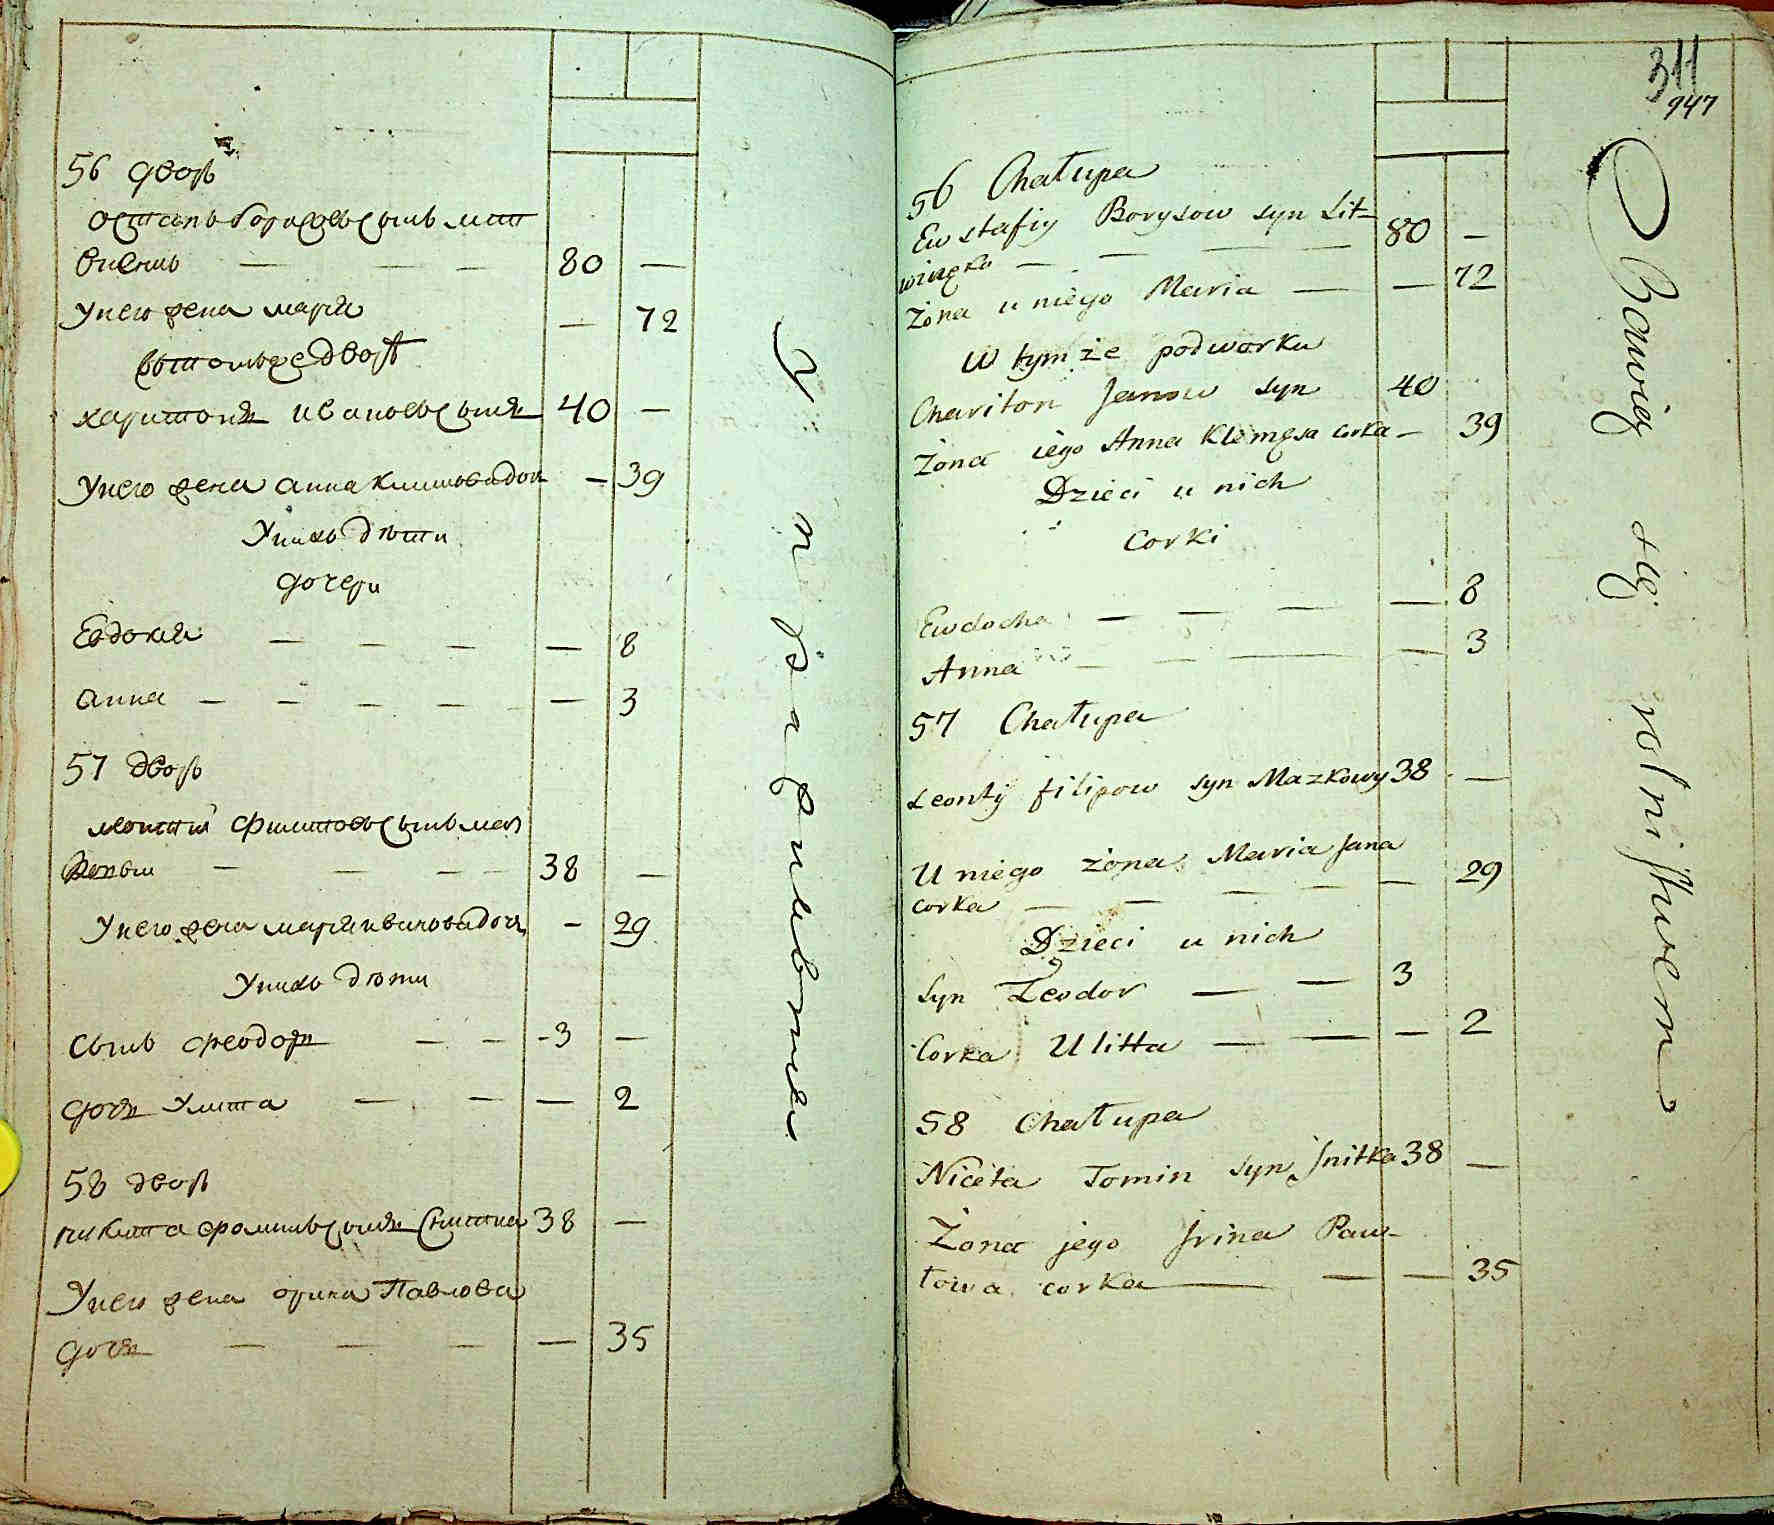 56 дворъ
Остапъ борисовъ сынъ лит
виенко — — — 80 —
У него жена марья — 72
В том же дворѣ
харитонъ ивановъ сынъ 40 —
У него жена анна климова дочь — 39
У нихъ дѣти
дочери
Евдокия — — — — 8
анна — — — — — — 3
57 дворъ
леонтий филиповъ сынъ маз
— — — — 38 —
У него жена марья иванова дочь — 29
У нихъ дѣти
сынъ феодоръ — — - 3 —
дочь Улита — — — 2
58 дворъ
никита фоминъ сынъ Снитка 38 —
У него жена орина Павлова
дочь — — — — 35
311
947
56 Chałupa
Ewstafiy Borysow syn Lit-
winęko — — — — 80 —
Żona u niego Maria — — 72
W tymże podwórku
Chariton Janow syn 40
Żona iego Anna Klemęsa corka — 39
Dzieci u nich
Corki
Ewdocha — — — — 8
Anna — — — — 3
57 Chałupa
Leonty filipow syn Mazkowy 38 —
U niego żona Maria Jana
corka — — — — — 29
Dzieci u nich
Syn Feodor — — 3
Corka Ulitta — — — 2
58 Chałupa
Niceta Tomin syn Snitka 38 —
Żona jego Irina Paw-
łowa corka — — — 35
Bawią się rolnictwem